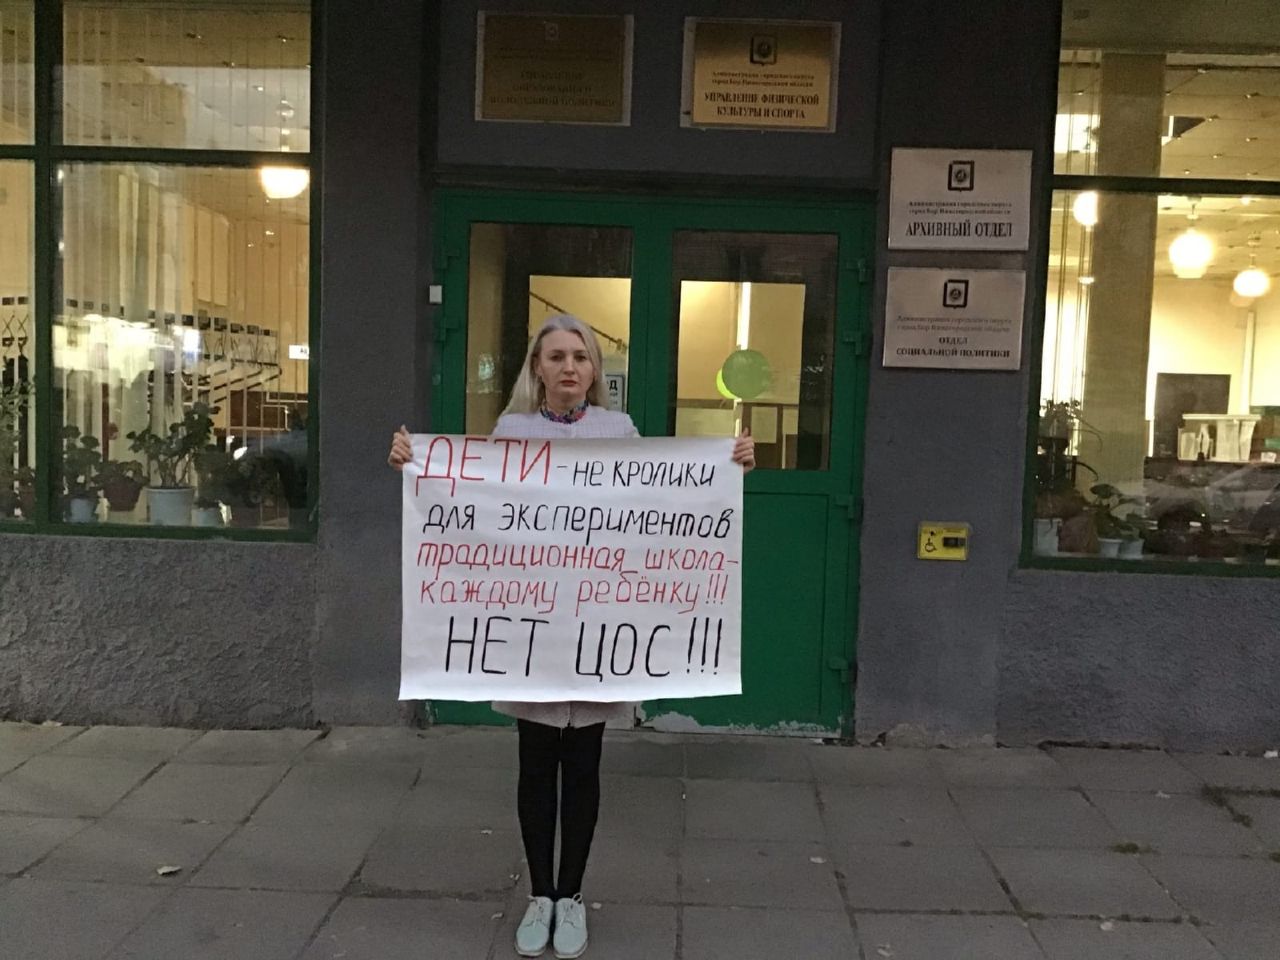 УПРАВЛЕНИЕ
ОБРАЗОВАНИЯ И
МОЛОДЕЖНОЙ ПОЛИТИКИ
Администрация городского округа
город Бор Нижегородской области
УПРАВЛЕНИЕ ФИЗИЧЕСКОЙ
КУЛЬТУРЫ И СПОРТА
Администрация городского округа
город Бор Нижегородской области
АРХИВНЫЙ ОТДЕЛ
Администрация городского округа
город Бор Нижегородской области
ОТДЕЛ
СОЦИАЛЬНОЙ ПОЛИТИКИ
ДЕТИ - НЕ КРОЛИКИ
ДЛЯ ЭКСПЕРИМЕНТОВ
ТРАДИЦИОННАЯ ШКОЛА-
КАЖДОМУ РЕБЁНКУ!!!
НЕТ ЦОС!!!